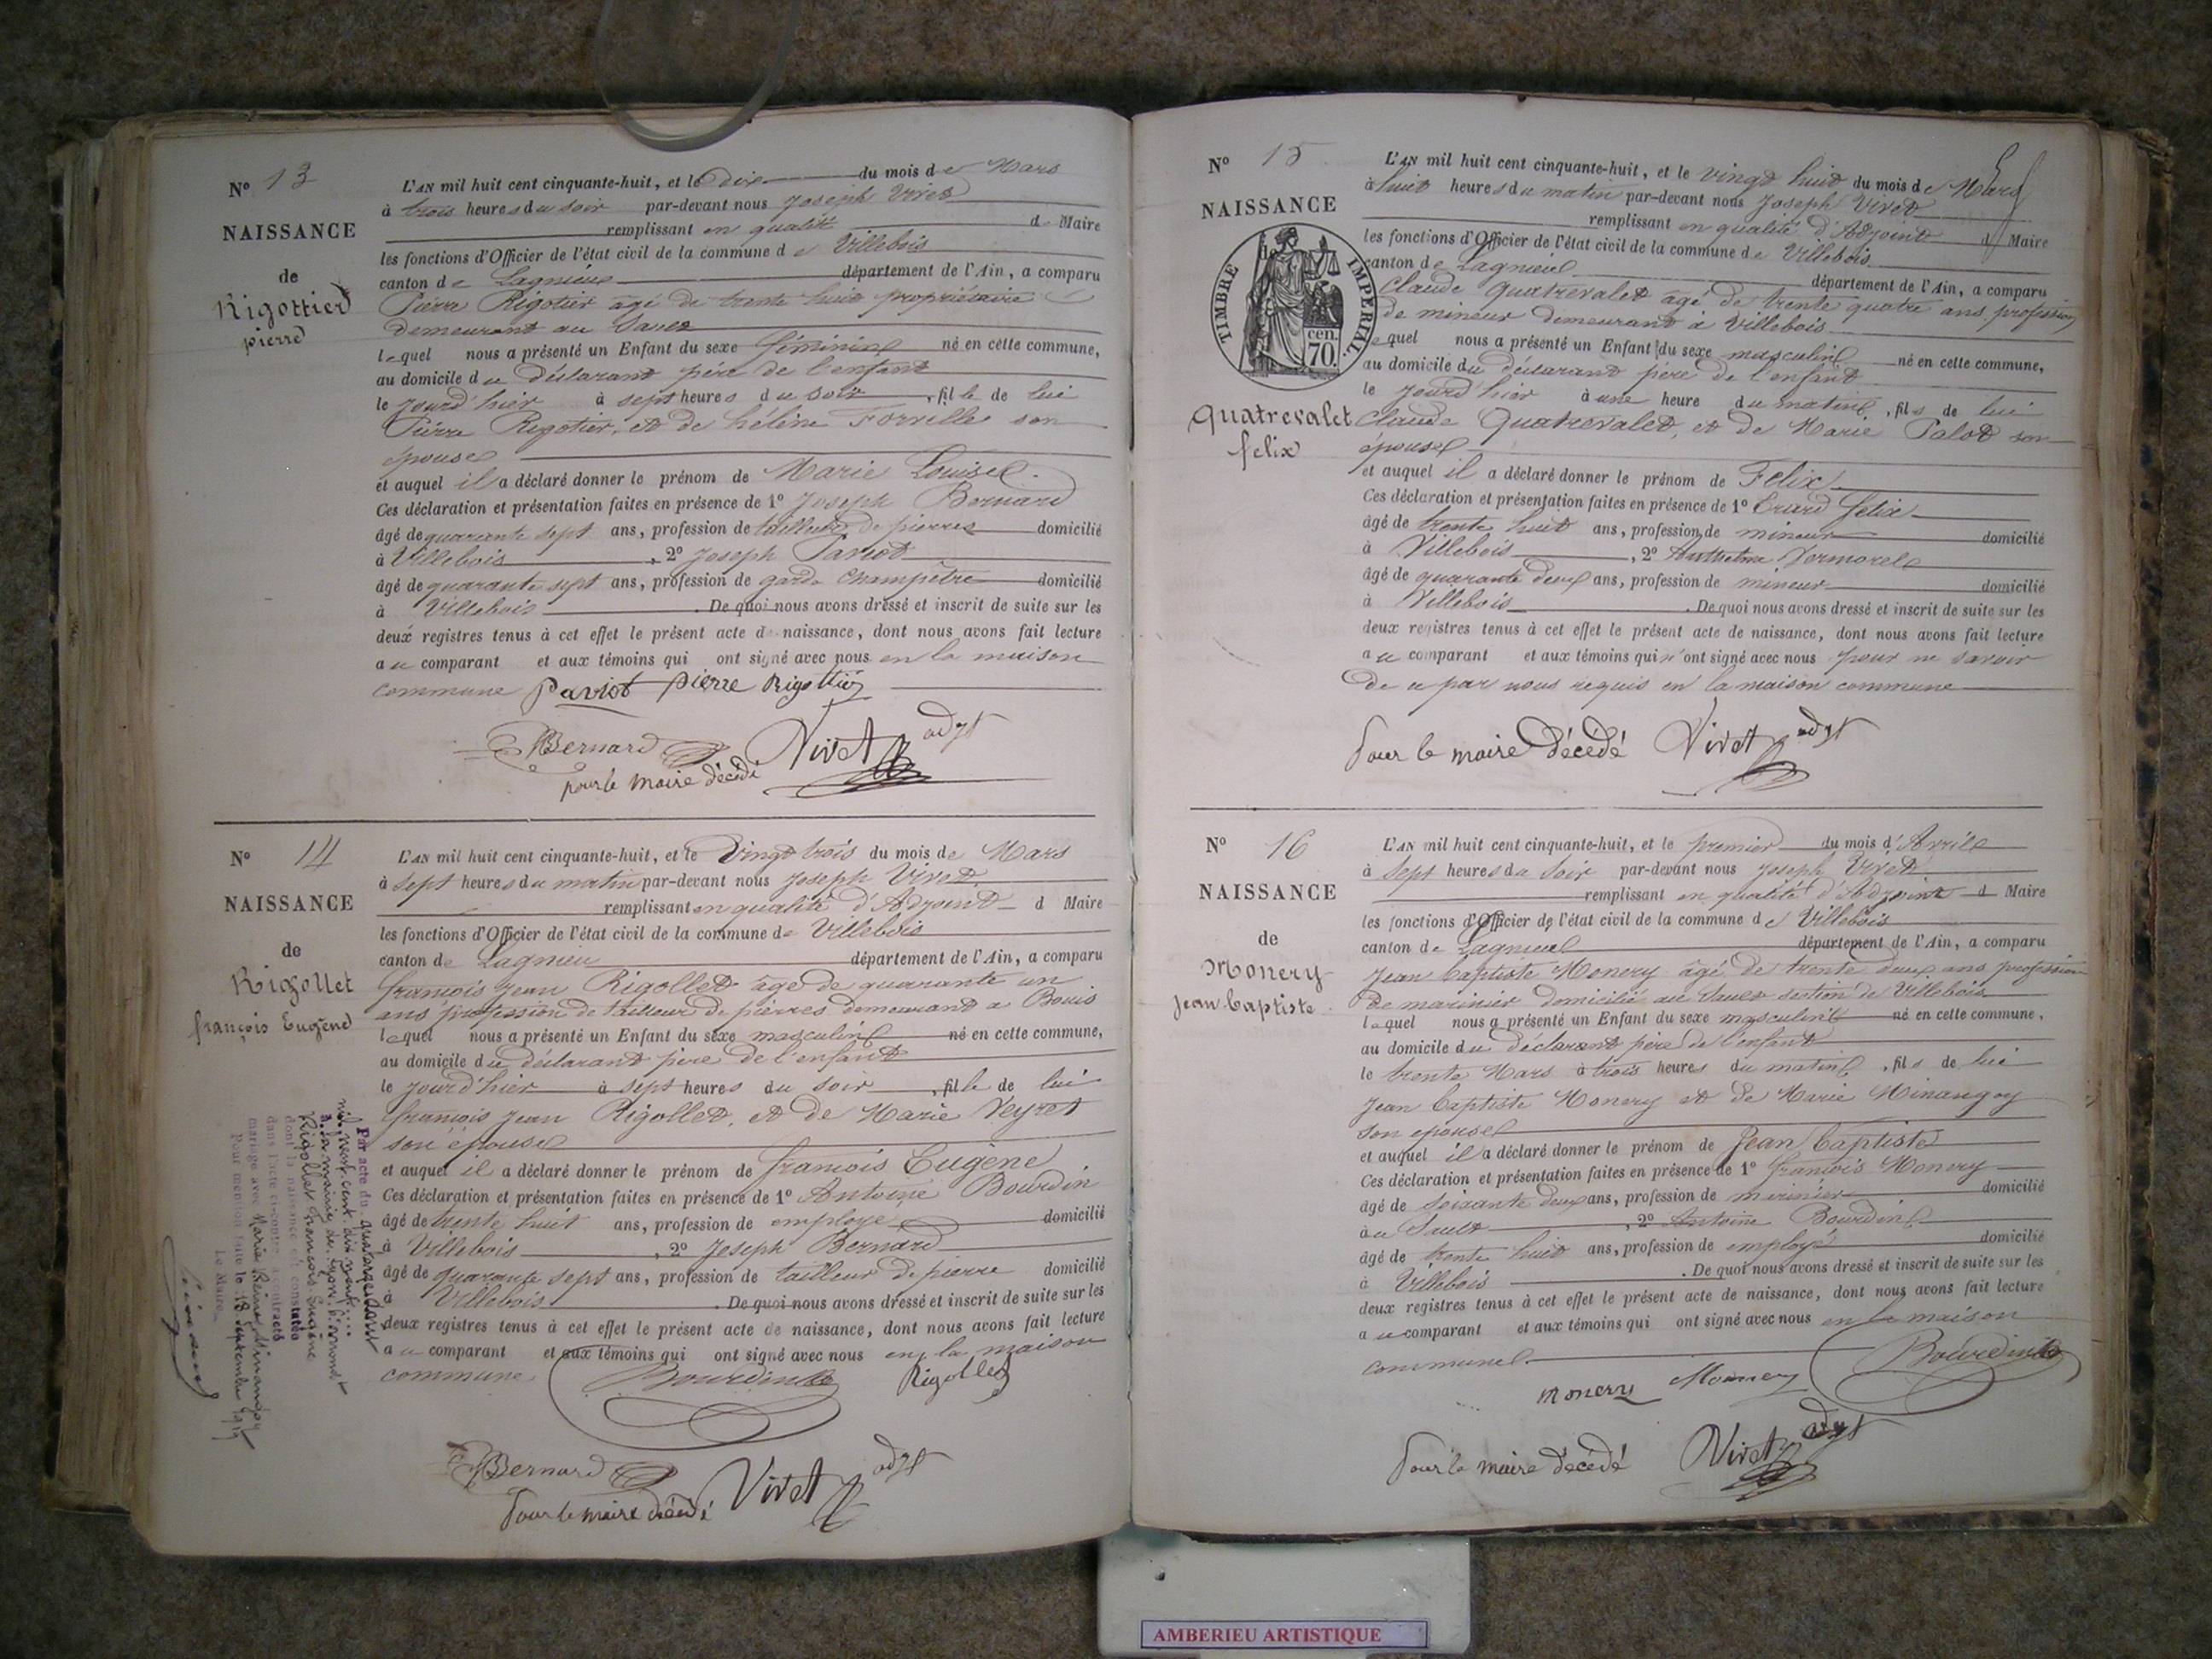 N° 13
NAISSANCE
de
Rigottier
pierre
L'AN mil huit cent cinquante-huit, et le dix du mois de Mars
à trois heures du soir par-devant nous Joseph Vivet
remplissant en qualité d Maire
les fonctions d'Officier de l'état civil de la commune de Villebois
canton de Lagnieu département de l'Ain, a comparu
Pierre Rigotier agé de trente huit propriétaire
demeurant au Sault
lequel nous a présenté un Enfant du sexe féminine né en cette commune,
au domicile du déclarant père de l'enfant
le jourd'hier à sept heures du soir, fille de lui
Pierre Rigotier, et de hélène Forville son
épouse
et auquel il a déclaré donner le prénom de Marie Louise
Ces déclaration et présentation faites en présence de 1° Joseph Bernard
âgé de quarante sept ans, profession de tailleur de pierres domicilié
à Villebois, 2° Joseph Paviot
âgé de quarante sept ans, profession de garde champêtre domicilié
à Villebois. De quoi nous avons dressé et inscrit de suite sur les
deux registres tenus à cet effet le présent acte de naissance, dont nous avons fait lecture
au comparant et aux témoins qui ont signé avec nous en la maison
commune Paviot pierre Rigottier
Bernard Vivet adjt
pour le maire décédé
N° 14
NAISSANCE
de
Rigollet
françois Eugène
L'AN mil huit cent cinquante-huit, et le vingt trois du mois de Mars
à sept heures du matin par-devant nous Joseph Vivet
remplissant en qualité d'Adjoint d Maire
les fonctions d'Officier de l'état civil de la commune de Villebois
canton de Lagnieu département de l'Ain, a comparu
francois jean Rigollet âgé de quarante un
ans profession de tailleur de pierres demeurant a Bouis
lequel nous a présenté un Enfant du sexe masculin né en cette commune,
au domicile du déclarant père de l'enfant
le jourd'hier à sept heures du soir, fils de lui
francois jean Rigollet, et de Marie Veyret
son épouse
et auquel il a déclaré donner le prénom de francois Eugène
Ces déclaration et présentation faites en présence de 1° Antoine Bourdin
âgé de trente huit ans, profession de employé domicilié
à Villebois, 2° Joseph Bernard
âgé de quarante sept ans, profession de tailleur de pierre domicilié
à Villebois. De quoi nous avons dressé et inscrit de suite sur les
deux registres tenus à cet effet le présent acte de naissance, dont nous avons fait lecture
au comparant et aux témoins qui ont signé avec nous en la maison
commune Bourdin Rigollet
Bernard Vivet adjt
Pour le maire décédé
Par acte du quatorze Aout
mil neuf cent dix neuf
à la mairie de Lyon
Rigollet francois Eugène
dont la naissance est constatée
dans l'acte ci-contre a contracté
mariage avec Marie Reine Minangoy
Pour mention faite le 18 septembre 1919
Le Maire
N° 15
NAISSANCE
TIMBRE IMPÉRIAL
cen.
70.
Quatrevalet
felix
L'AN mil huit cent cinquante-huit, et le vingt huit du mois de Mars
à huit heures du matin par-devant nous Joseph Vivet
remplissant en qualité d'Adjoint d Maire
les fonctions d'Officier de l'état civil de la commune de Villebois
canton de Lagnieu département de l'Ain, a comparu
Claude Quatrevalet âgé de trente quatre ans profession
de mineur demeurant à Villebois
lequel nous a présenté un Enfant du sexe masculin né en cette commune,
au domicile du déclarant père de l'enfant
le jourd'hier à une heure du matin, fils de lui
Claude Quatrevalet, et de Marie Palot son
épouse
et auquel il a déclaré donner le prénom de Felix
Ces déclaration et présentation faites en présence de 1° Erard felix
âgé de trente huit ans, profession de mineur domicilié
à Villebois, 2° Anthelme Vermorel
âgé de quarante deux ans, profession de mineur domicilié
à Villebois. De quoi nous avons dressé et inscrit de suite sur les
deux registres tenus à cet effet le présent acte de naissance, dont nous avons fait lecture
au comparant et aux témoins qui n'ont signé avec nous pour ne savoir
de ce par nous requis en la maison commune
Pour le maire décédé Vivet adjt
N° 16
NAISSANCE
de
Monery
Jean-baptiste
L'AN mil huit cent cinquante-huit, et le premier du mois d'Avril
à sept heures du soir par-devant nous Joseph Vivet
remplissant en qualité d'Adjoint d Maire
les fonctions d'Officier de l'état civil de la commune de Villebois
canton de Lagnieu département de l'Ain, a comparu
Jean baptiste Monery âgé de trente deux ans profession
de marinier domicilié au Sault section de Villebois
lequel nous a présenté un Enfant du sexe masculin né en cette commune,
au domicile du déclarant père de l'enfant
le trente Mars à trois heures du matin, fils de lui
Jean baptiste Monery et de Marie Minangoy
son epouse
et auquel il a déclaré donner le prénom de Jean baptiste
Ces déclaration et présentation faites en présence de 1° francois Monery
âgé de soixante deux ans, profession de marinier domicilié
à au Sault, 2° Antoine Bourdin
âgé de trente huit ans, profession de employé domicilié
à Villebois. De quoi nous avons dressé et inscrit de suite sur les
deux registres tenus à cet effet le présent acte de naissance, dont nous avons fait lecture
au comparant et aux témoins qui ont signé avec nous en la maison
commune Bourdin
monery Monery
Pour le maire décédé Vivet adjt
AMBERIEU ARTISTIQUE